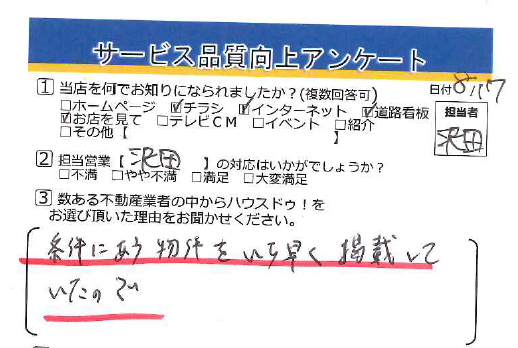 サービス品質向上アンケート
1 当店を何でお知りになられましたか?(複数回答可) 日付 8/17
□ホームページ ☑チラシ ☑インターネット ☑道路看板 担当者
☑お店を見て □テレビCM □イベント □紹介 沢田
□その他【 】
2 担当営業【 沢田 】の対応はいかがでしょうか?
□不満 □やや不満 □満足 □大変満足
3 数ある不動産業者の中からハウスドゥ!を
お選び頂いた理由をお聞かせください。
条件にあう物件をいち早く掲載して
いたので